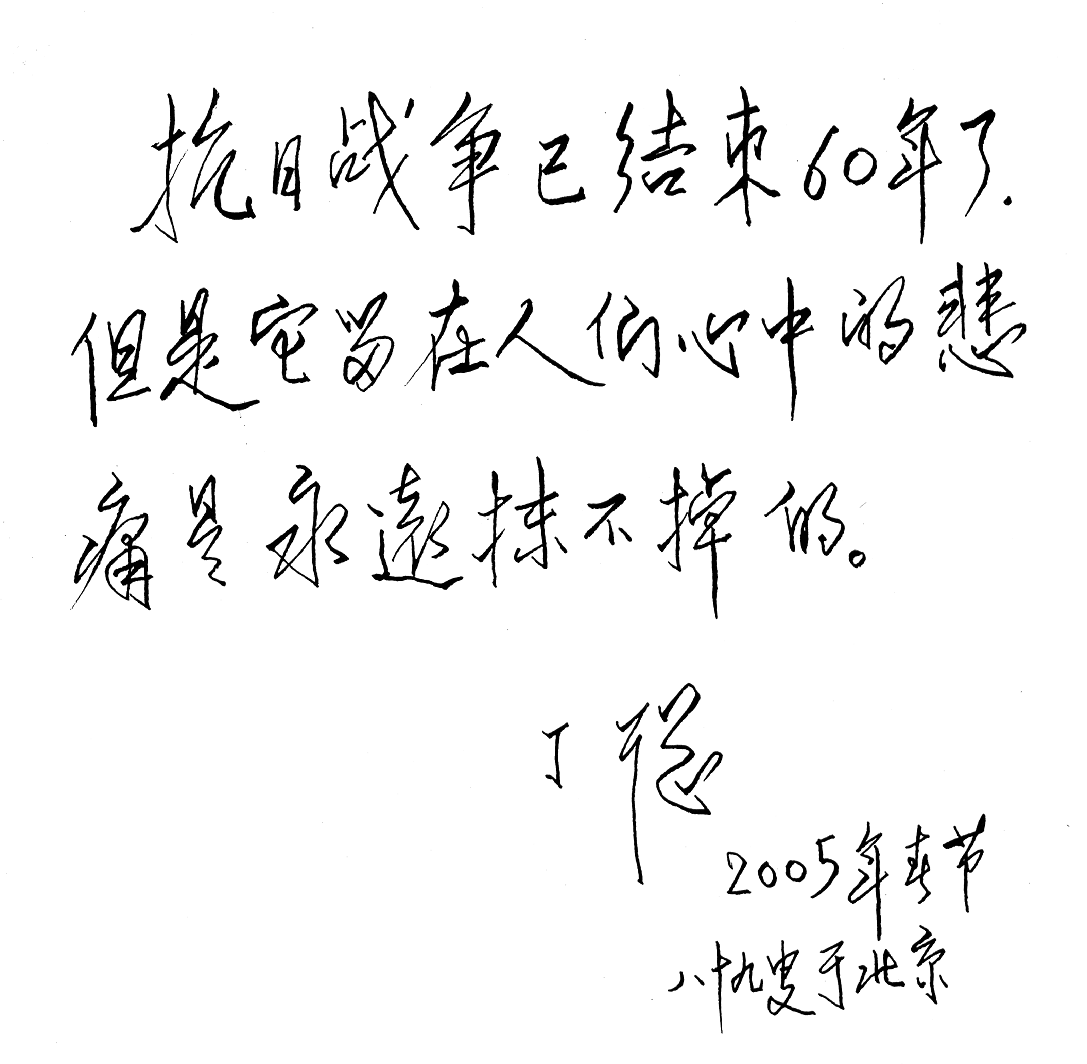 抗日战争已结束60年了.
但是它留在人们心中的悲
痛是永遠抹不掉的。
丁聪
2005年春节
八十九叟于北京